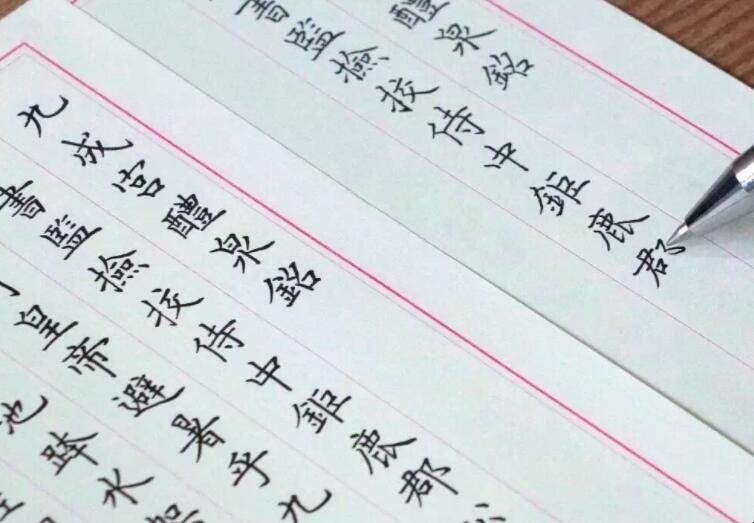 醴泉銘
書監檢校侍中鉅鹿郡
九成宮醴泉銘
書監檢校侍中鉅鹿郡
皇帝避暑乎九
池跨水